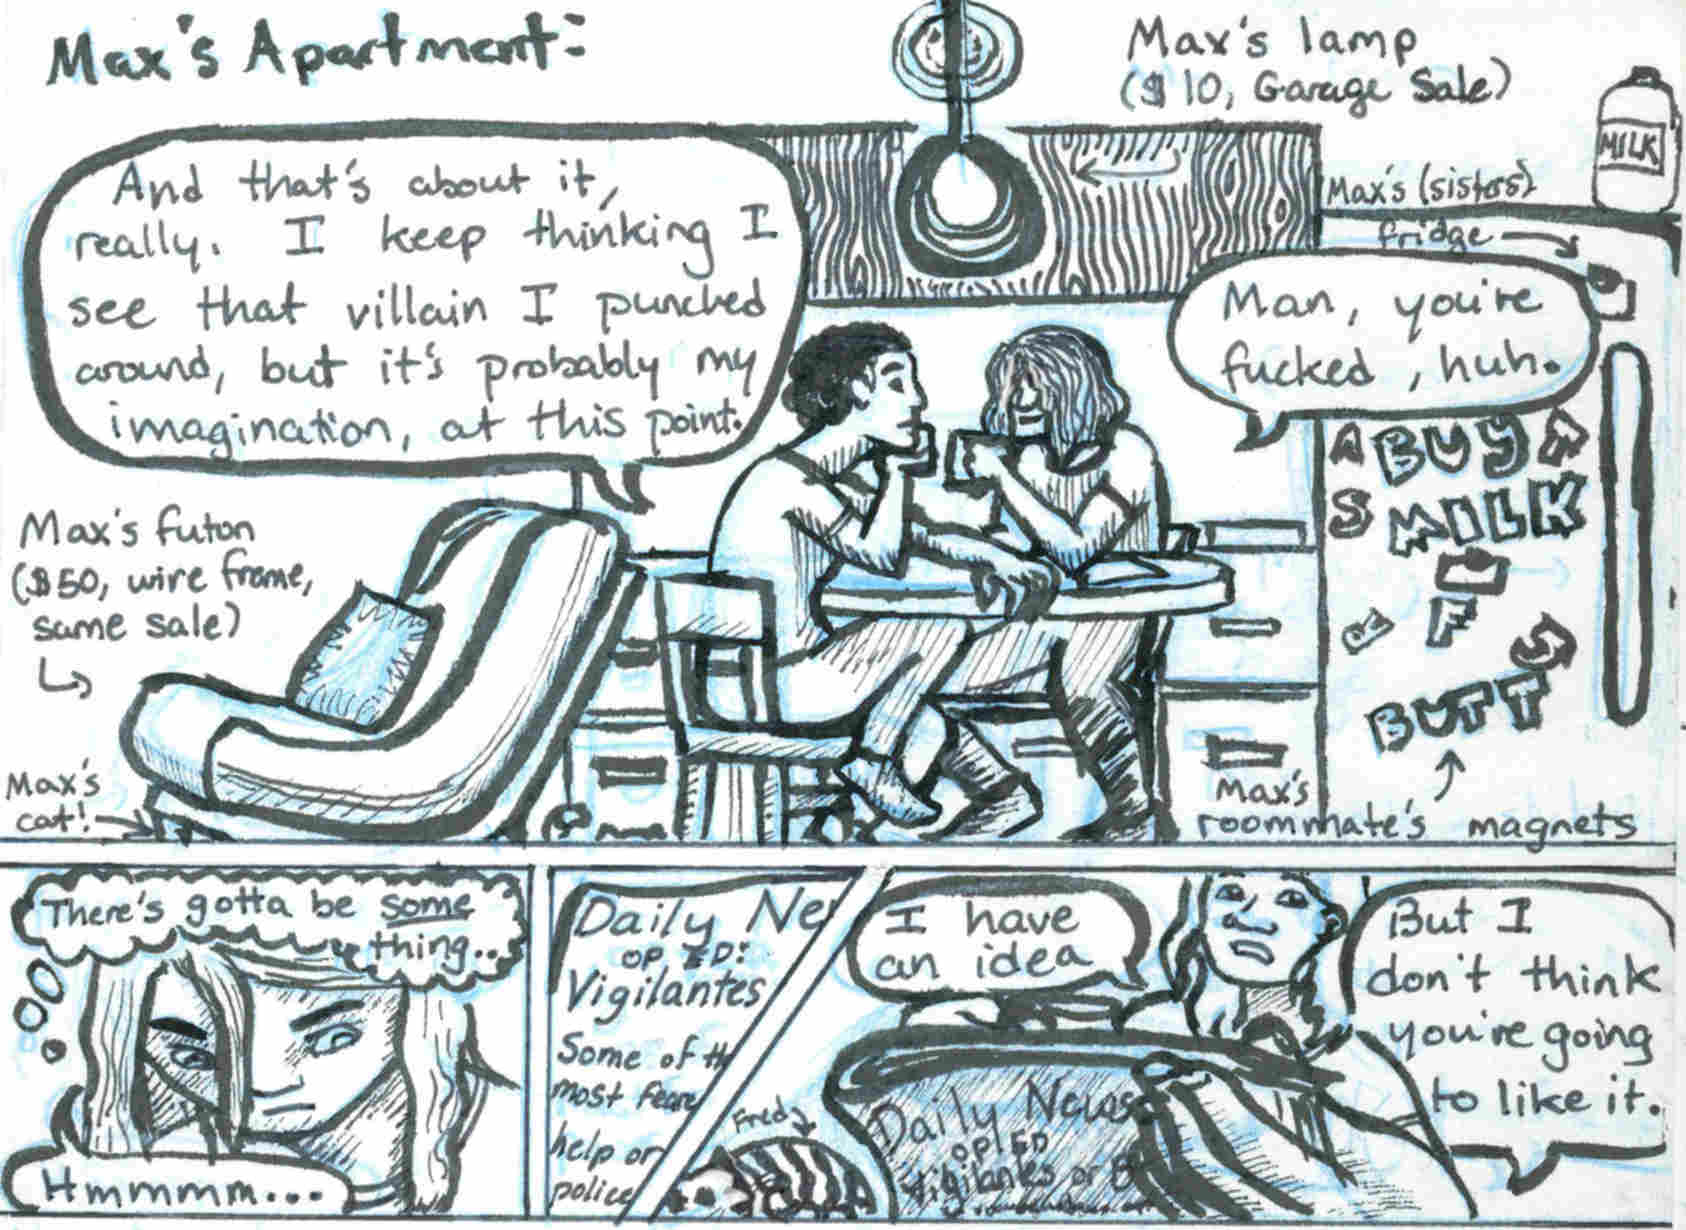 Max's Apartment:
Max's lamp
($10, Garage Sale)
MILK
And that's about it,
really. I keep thinking I
see that villain I punched
around, but it's probably my
imagination, at this point.
Max's (sisters)
fridge
Man, you're
fucked, huh.
A BUY A
S MILK
F
S
BUTT
Max's futon
($50, wire frame,
same sale)
Max's
cat!
Max's
roommate's magnets
There's gotta be some
thing...
Hmmmm...
Daily Ne
OP ED:
Vigilantes
Some of th
most feare
help or
police
I have
an idea
But I
don't think
you're going
to like it.
Fred
Daily News
OP ED
Vigilantes or